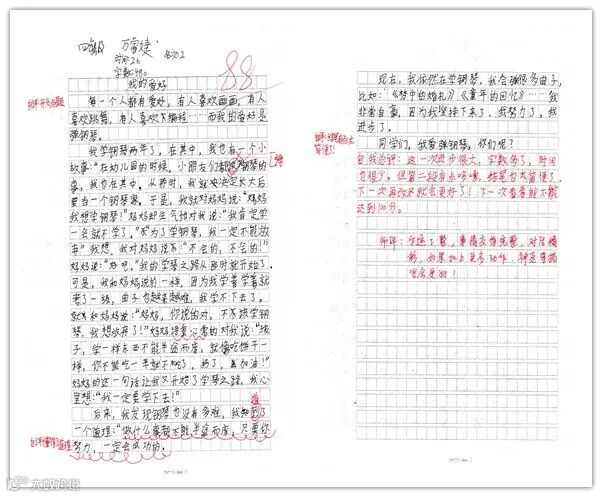 88
我的爱好
每一个人都有爱好，有人喜欢画画，有人
喜欢跳舞，有人喜欢下象棋……而我的爱好是
弹钢琴。
我学钢琴两年了，在其中，我也有一个小
故事：“在幼儿园的时候，小朋友们都 钢琴的
事，我也在其中。从那时，我就决定长大后
要当一个钢琴家。于是，我就对妈妈说：“妈妈
我想学钢琴！”妈妈却生气持对我说：“我肯定学
一会就不学了。”“我为了学钢琴，我一定不能放
弃”我想，我对妈妈说不：“不会的，不会的！”
妈妈说：“好吧。”我的学琴之路从那时就开始了。
可是，我和妈妈说的一样，因为我学着学着就
考了一级，曲子也越来越难，我学不下去了。
就 和妈妈说：“妈妈，你说的对，不 该学钢
琴，我想放弃了！”妈妈 心重的对我说：“孩
子，学一样东西不能半途而废，就像吃饼干一
样，你不能吃一半就不吃了，扔了，加油！”
妈妈的这一句话让我又开始了学琴之路，我心
里想：“我一定要学下去！”
后来，我发现钢琴也没有多难，我知道了
一个道理：“做什么事都不能半途而废，只要你
努力，一定会成功的。
现在，我依然在学钢琴，我会弹很多曲子，
比如：《梦中的婚礼》《童年的回忆》……我
非常自豪，因为我坚持下来了，我努力了，我
进步了。
同学们，我爱弹钢琴，你们呢？
自我总评：这一次进步很大，字数够了，时间
也很少。但第二段有点啰嗦，结尾也太简便了，
下一次再改正就会更好了！下一次看看能不能
达到100分。
师评：字迹工整，事情交待完整，对话精
彩，如果加上更多动作、神态等描
写会更好！